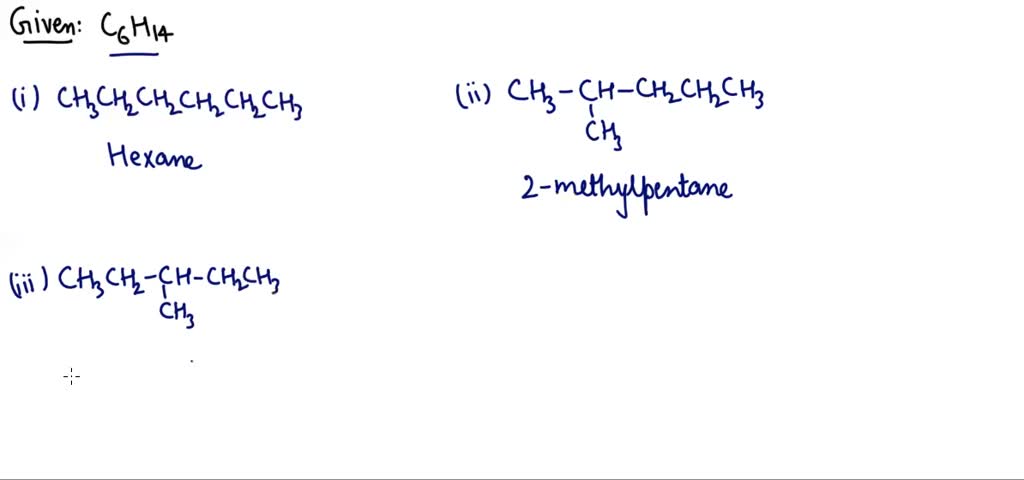 Given: C₆H₁₄
(i) CH₃CH₂CH₂CH₂CH₂CH₃
Hexane
(ii) CH₃-CH-CH₂CH₂CH₃
CH₃
2-methylpentane
(iii) CH₃CH₂-CH-CH₂CH₃
CH₃